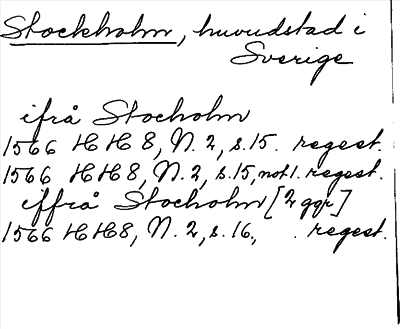 Stockholm, huvudstad i
Sverige
ifrå Stocholm
1566 HH8, N. 2, s. 15. regest.
1566 HH8, N. 2, s. 15, not 1. regest.
iffrå Stocholm [2 ggr]
1566 HH8, N. 2, s. 16, . regest.